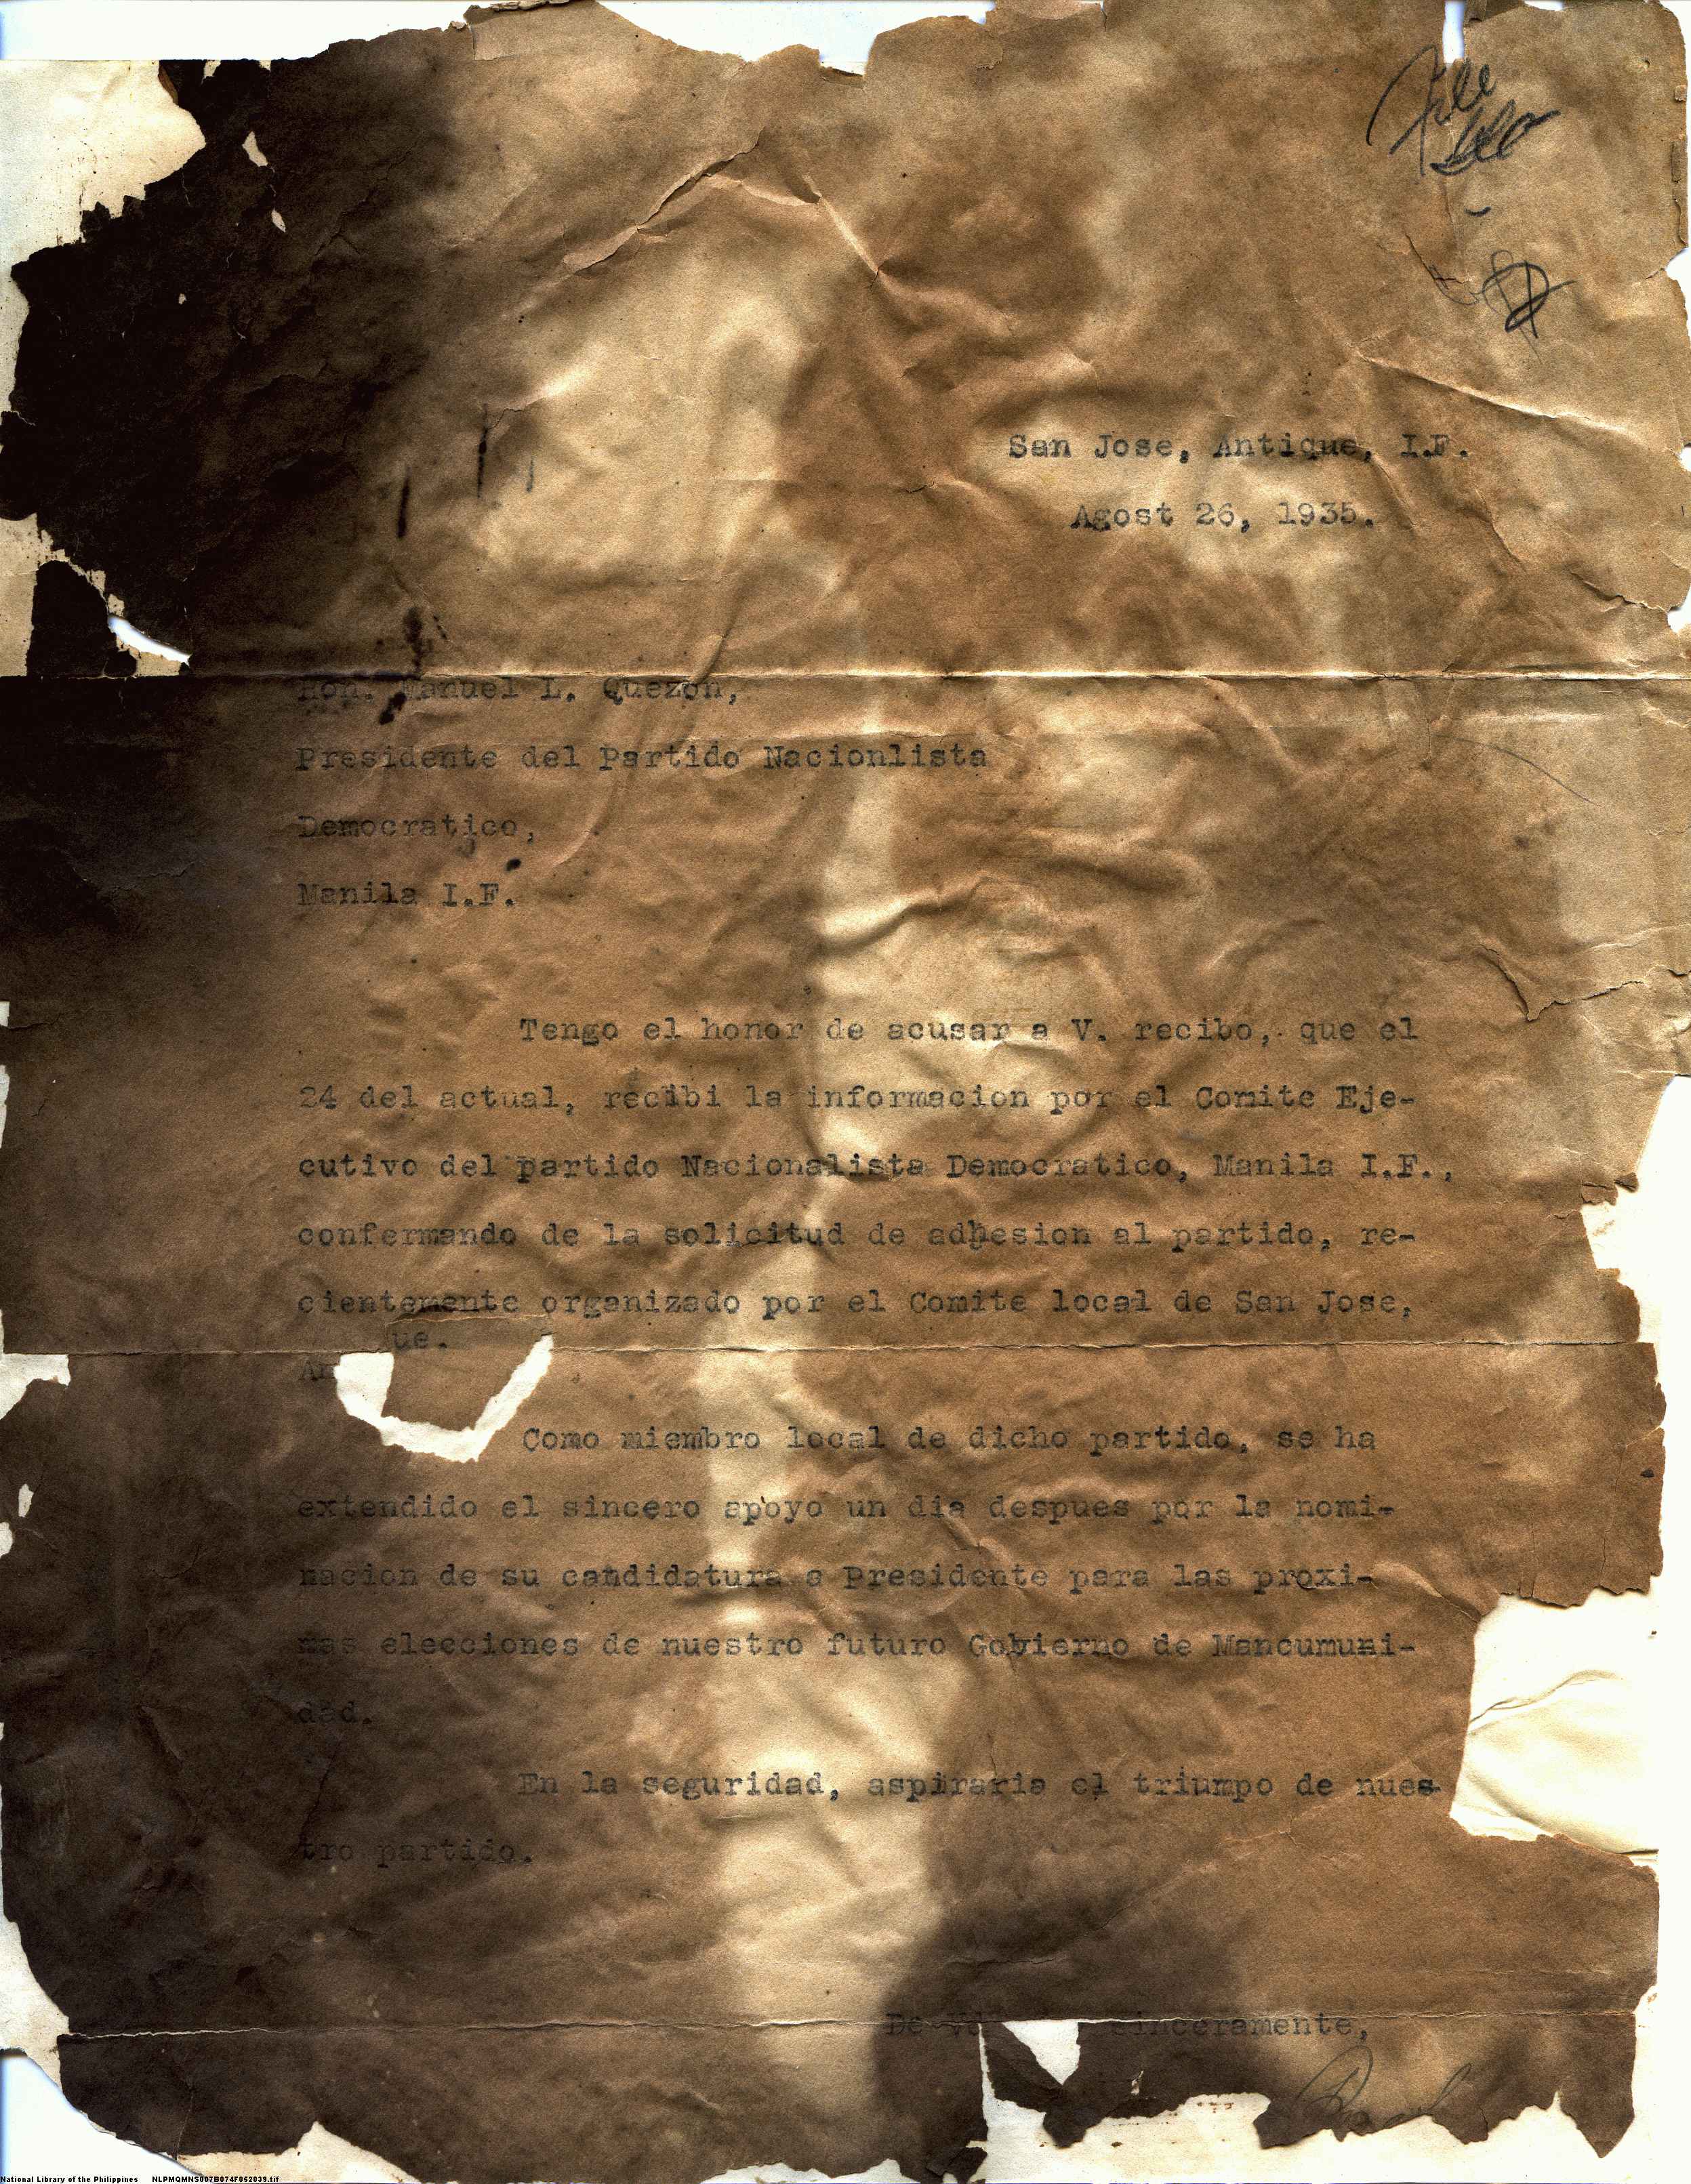 File
San Jose, Antique, I.F.
Agost 26, 1935.
Hon. Manuel L. Quezon,
Presidente del Partido Nacionlista
Democratico,
Manila I.F.
Tengo el honor de acusar a V. recibo, que el
24 del actual, recibi la informacion por el Comite Eje-
cutivo del partido Nacionalista Democratico, Manila I.F.,
confermando de la solicitud de adhesion al partido, re-
cientemente organizado por el Comite local de San Jose,
ue.
An
Como miembro local de dicho partido, se ha
extendido el sincero apoyo un dia despues por la nomi-
nacion de su candidatura a Presidente para las proxi-
mas elecciones de nuestro futuro Gobierno de Mancumuni-
dad.
En la seguridad, aspiraria el triumpo de nues-
tro partido.
De sinceramente,
National Library of the Philippines NLPMQMNS007B074F052039.tif